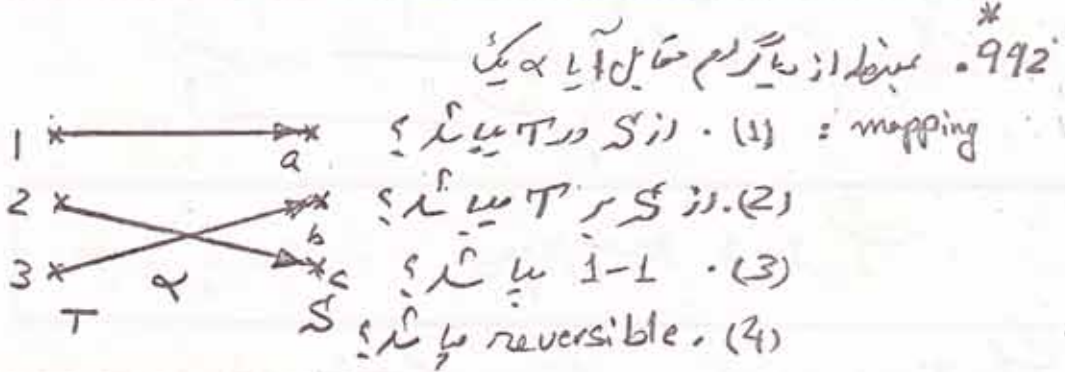 *
992. منظور از دیاگرام مقابل آیا α یک
mapping : (1). از S در T میباشد ؟
(2). از S بر T میباشد ؟
(3). 1-1 میباشد ؟
(4). reversible میباشد ؟
1 a
2 b
3 c
α
T S